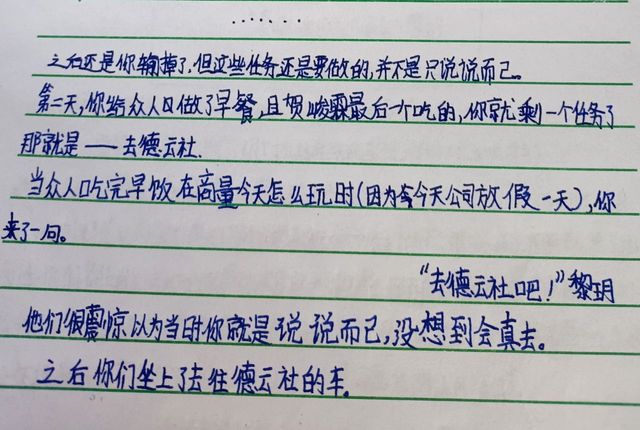 ......
之后还是你输掉了,但这些任务还是要做的,并不是只说说而已。
第二天,你给众人口做了早餐,且贺峻霖最后一个吃的,你就剩一个任务了
那就是——去德云社.
当众人吃完早饭在商量今天怎么玩时(因为今天公司放假一天),你
来了一句。
"去德云社吧!"黎玥
他们很震惊以为当时你就是说说而已,没想到会真去。
之后你们坐上了去往德云社的车。